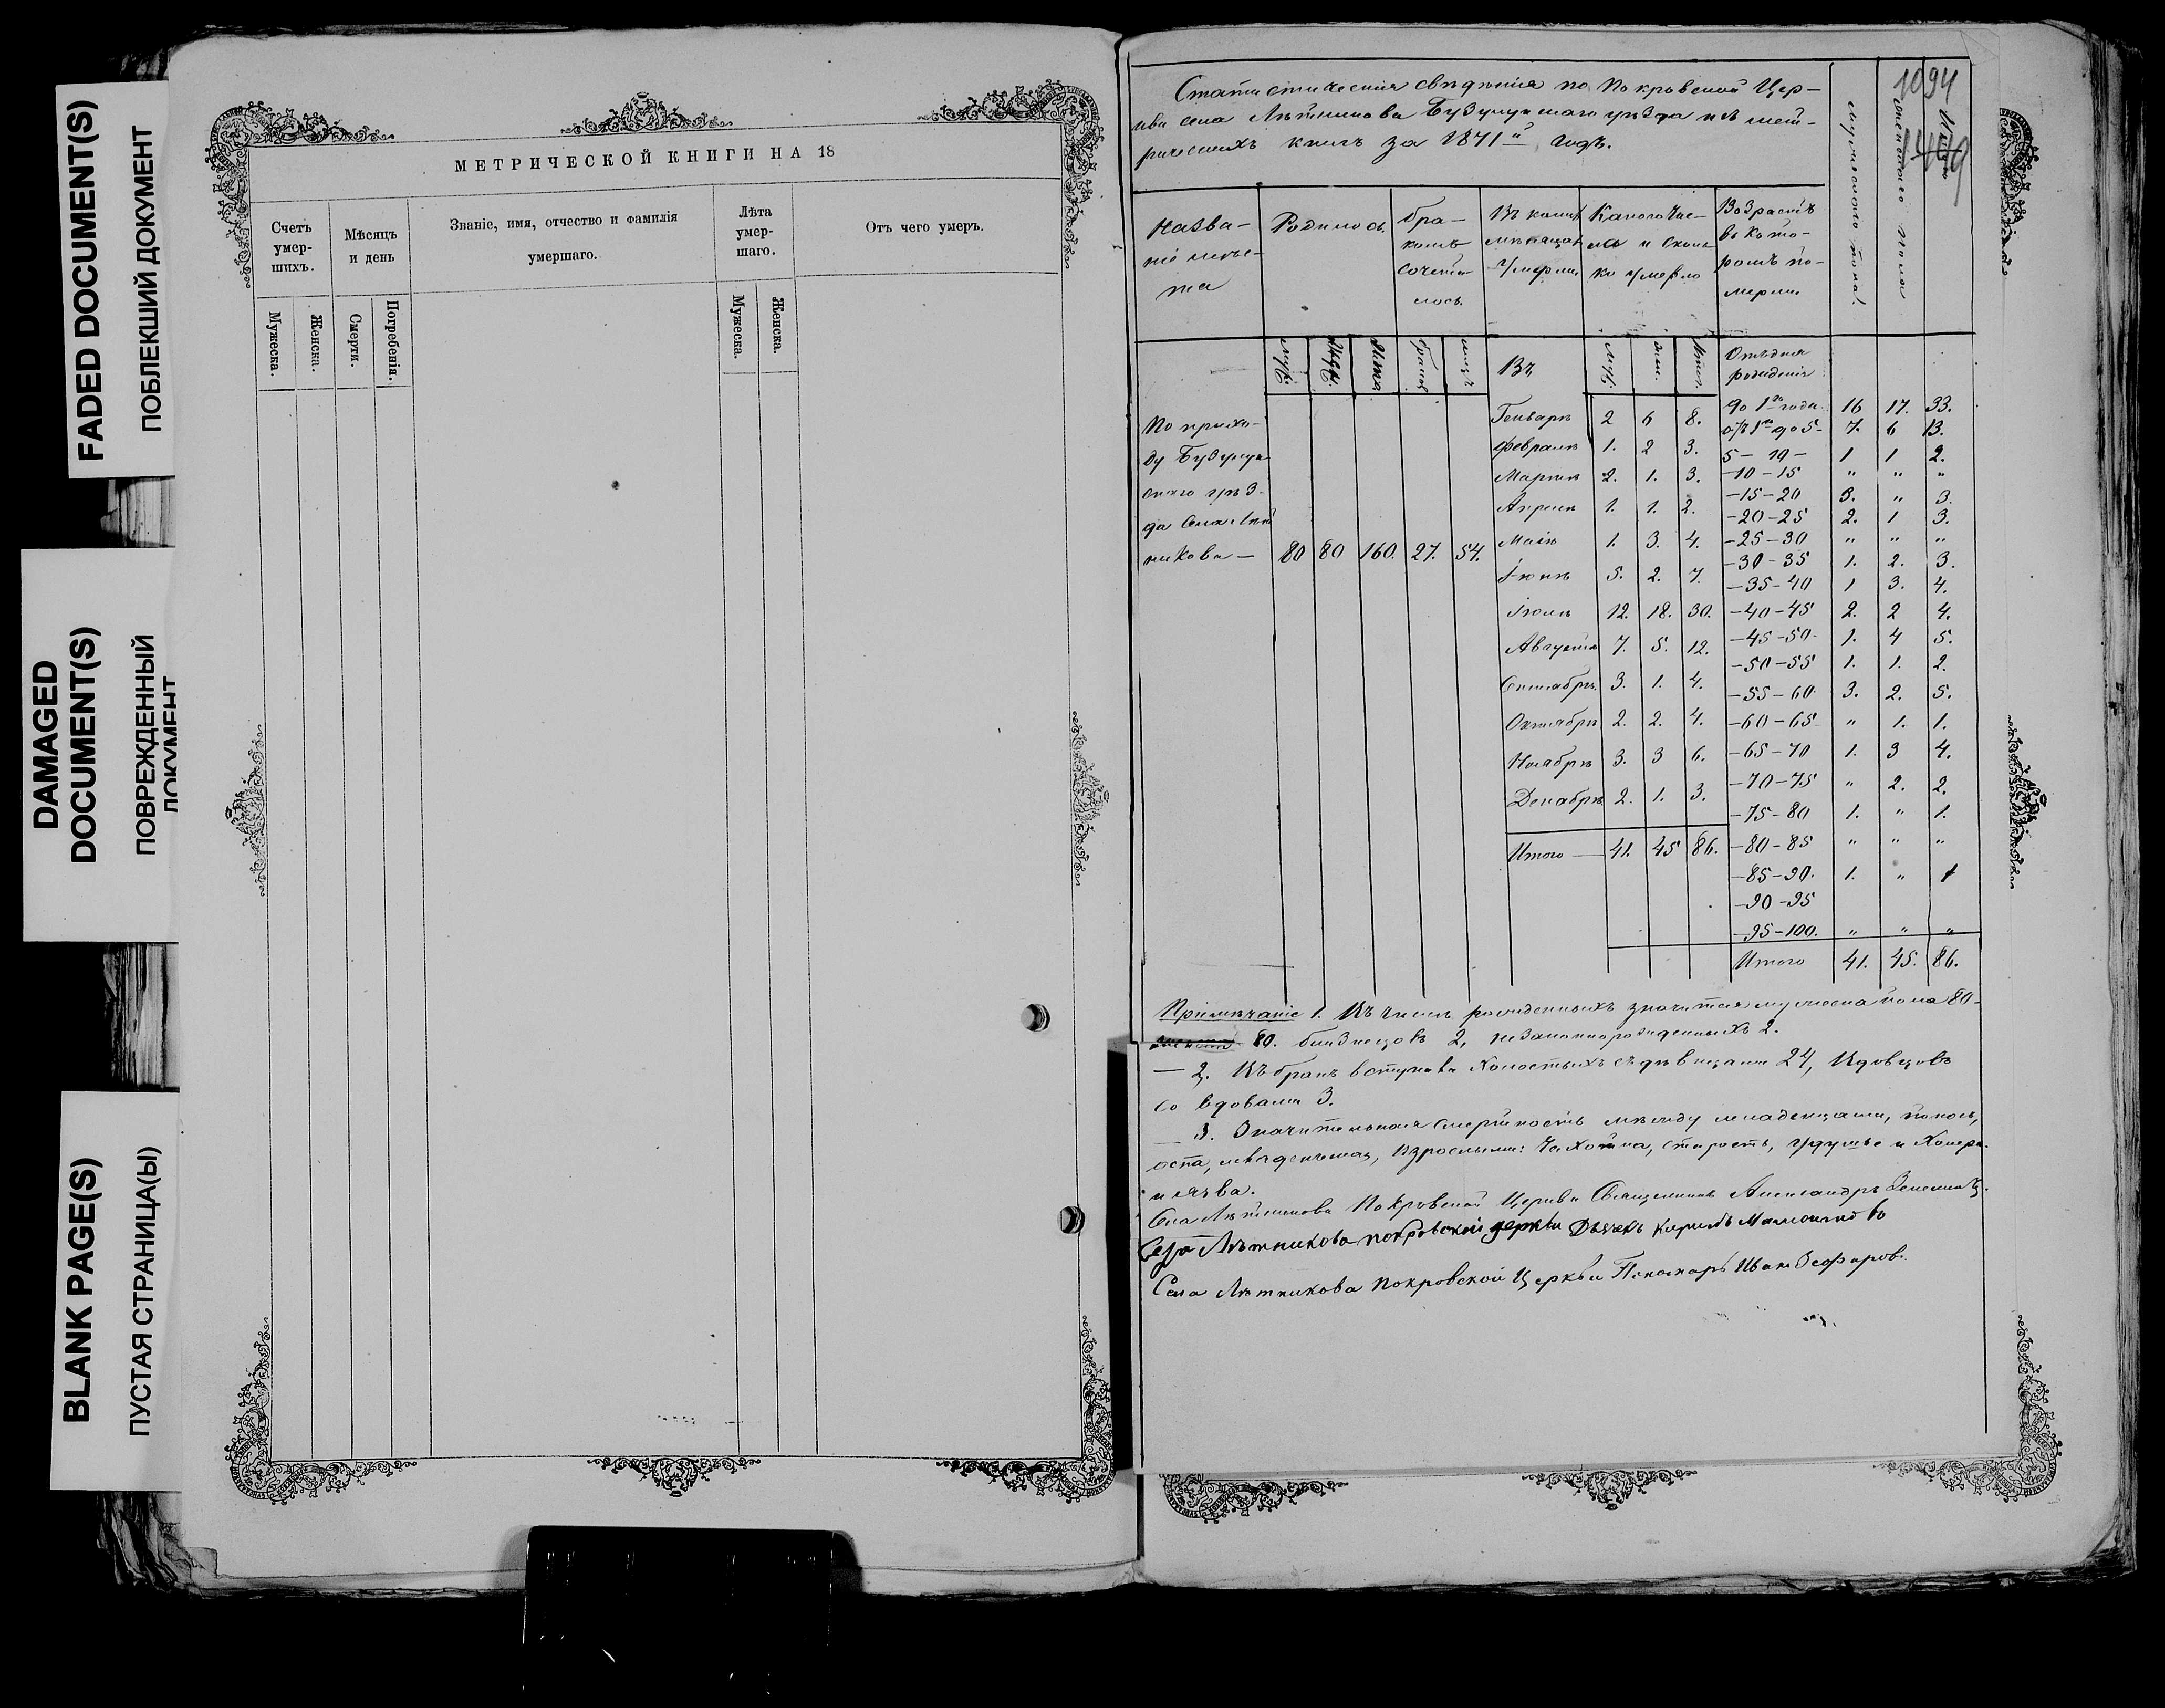 FADED DOCUMENT(S)
ПОБЛЕКШИЙ ДОКУМЕНТ
DAMAGED
DOCUMENT(S)
ПОВРЕЖДЕННЫЙ
ДОКУМЕНТ
BLANK PAGE(S)
ПУСТАЯ СТРАНИЦА(Ы)
МЕТРИЧЕСКОЙ КНИГИ НА 18
Счетъ умер-шихъ.
Мѣсяцъ и день
Званіе, имя, отчество и фамилія умершаго.
Лѣта умер-шаго.
Отъ чего умеръ.
Мужеска.
Женска.
Смерти.
Погребенія.
Мужеска.
Женска.
1094
Статистическія свѣдѣнія по Покровской Цер-
кви села Лѣтникова Бузулукскаго уѣзда изъ мет-
рическихъ книгъ за 1871й годъ.
мужескаго пола.
женскаго пола
Итого
Назва-
ніе мѣс-
та
Родилось
бра-
комъ
сочета-
лось.
Въ какихъ
мѣсяцахъ
умерли
Какого чис-
ла и сколь
ко умерло
Возрастъ
въ кото-
ромъ по-
мерли
Въ
Отъ дня
рожденія
По прихо-
ду Бузулук-
скаго уѣз-
да села Лѣт
никова — 80 80 160. 27. 54.
Генварѣ 2 6 8.
Февралѣ 1. 2 3.
Мартѣ 2. 1. 3.
Апрелѣ 1. 1. 2.
Маіѣ 1. 3. 4.
Іюнѣ 5. 2. 7.
Іюлѣ 12. 18. 30.
Августѣ 7. 5. 12.
Сентябрѣ 3. 1. 4.
Октябрѣ 2. 2. 4.
Ноябрѣ 3. 3 6.
Декабрѣ 2. 1. 3.
Итого — 41. 45 86.
до 1го года. 16 17. 33.
отъ 1го до 5- 7. 6 13.
5 - 10 - 1 1 2.
-10-15 " " "
-15-20 3. " 3.
-20-25 2. 1 3.
-25-30 " " "
-30-35 1. 2. 3.
-35-40 1 3. 4.
-40-45 2. 2 4.
-45-50. 1. 4 5.
-50-55 1. 1. 2.
-55-60. 3. 2. 5.
-60-65 " 1. 1.
-65-70 1. 3 4.
-70-75 " 2. 2.
-75-80 1. " 1.
-80-85 " " "
-85-90. 1. " 1
-90-95
-95-100. " " "
Итого 41. 45. 86.
Примѣчаніе 1. Въ числѣ рожденныхъ значится мужеска пола 80-
80. близнецовъ 2, незаконнорожденныхъ 2.
— 2. Въ бракъ вступили холостыхъ съ дѣвицами 24, Вдовцовъ
со вдовами 3.
— 3. Значительная смертность между младенцами, поносъ,
оспа, младенческая, взрослыми: Чахотка, старость, удушье и Холера
и язва.
Села Лѣтникова Покровской Церкви Священникъ Александръ
Села Лѣтникова покровской церкви Дьячекъ Кирилъ
Села Лѣтникова Покровской Церкви Пономарь Иванъ Зефировъ.